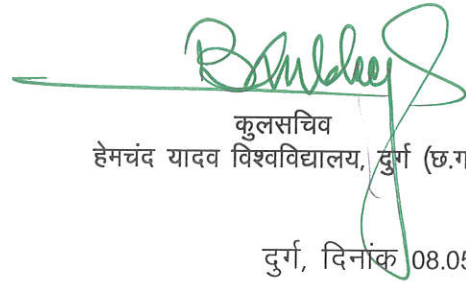 कुलसचिव
हेमचंद यादव विश्वविद्यालय, दुर्ग (छ.ग
दुर्ग, दिनांक 08.05